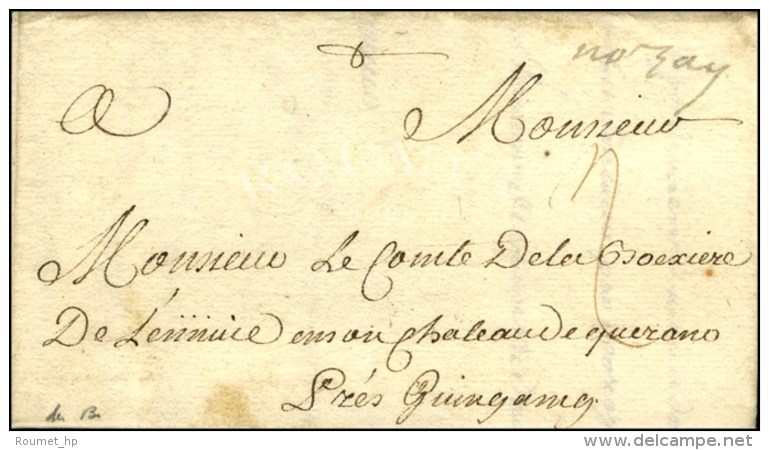 norzay
A Monsieur
Monsieur Le Comte De la Boexiere
De Lennuic en son Chateau de querano
Prés Guingamg
Roumet_hp
delcampe.net